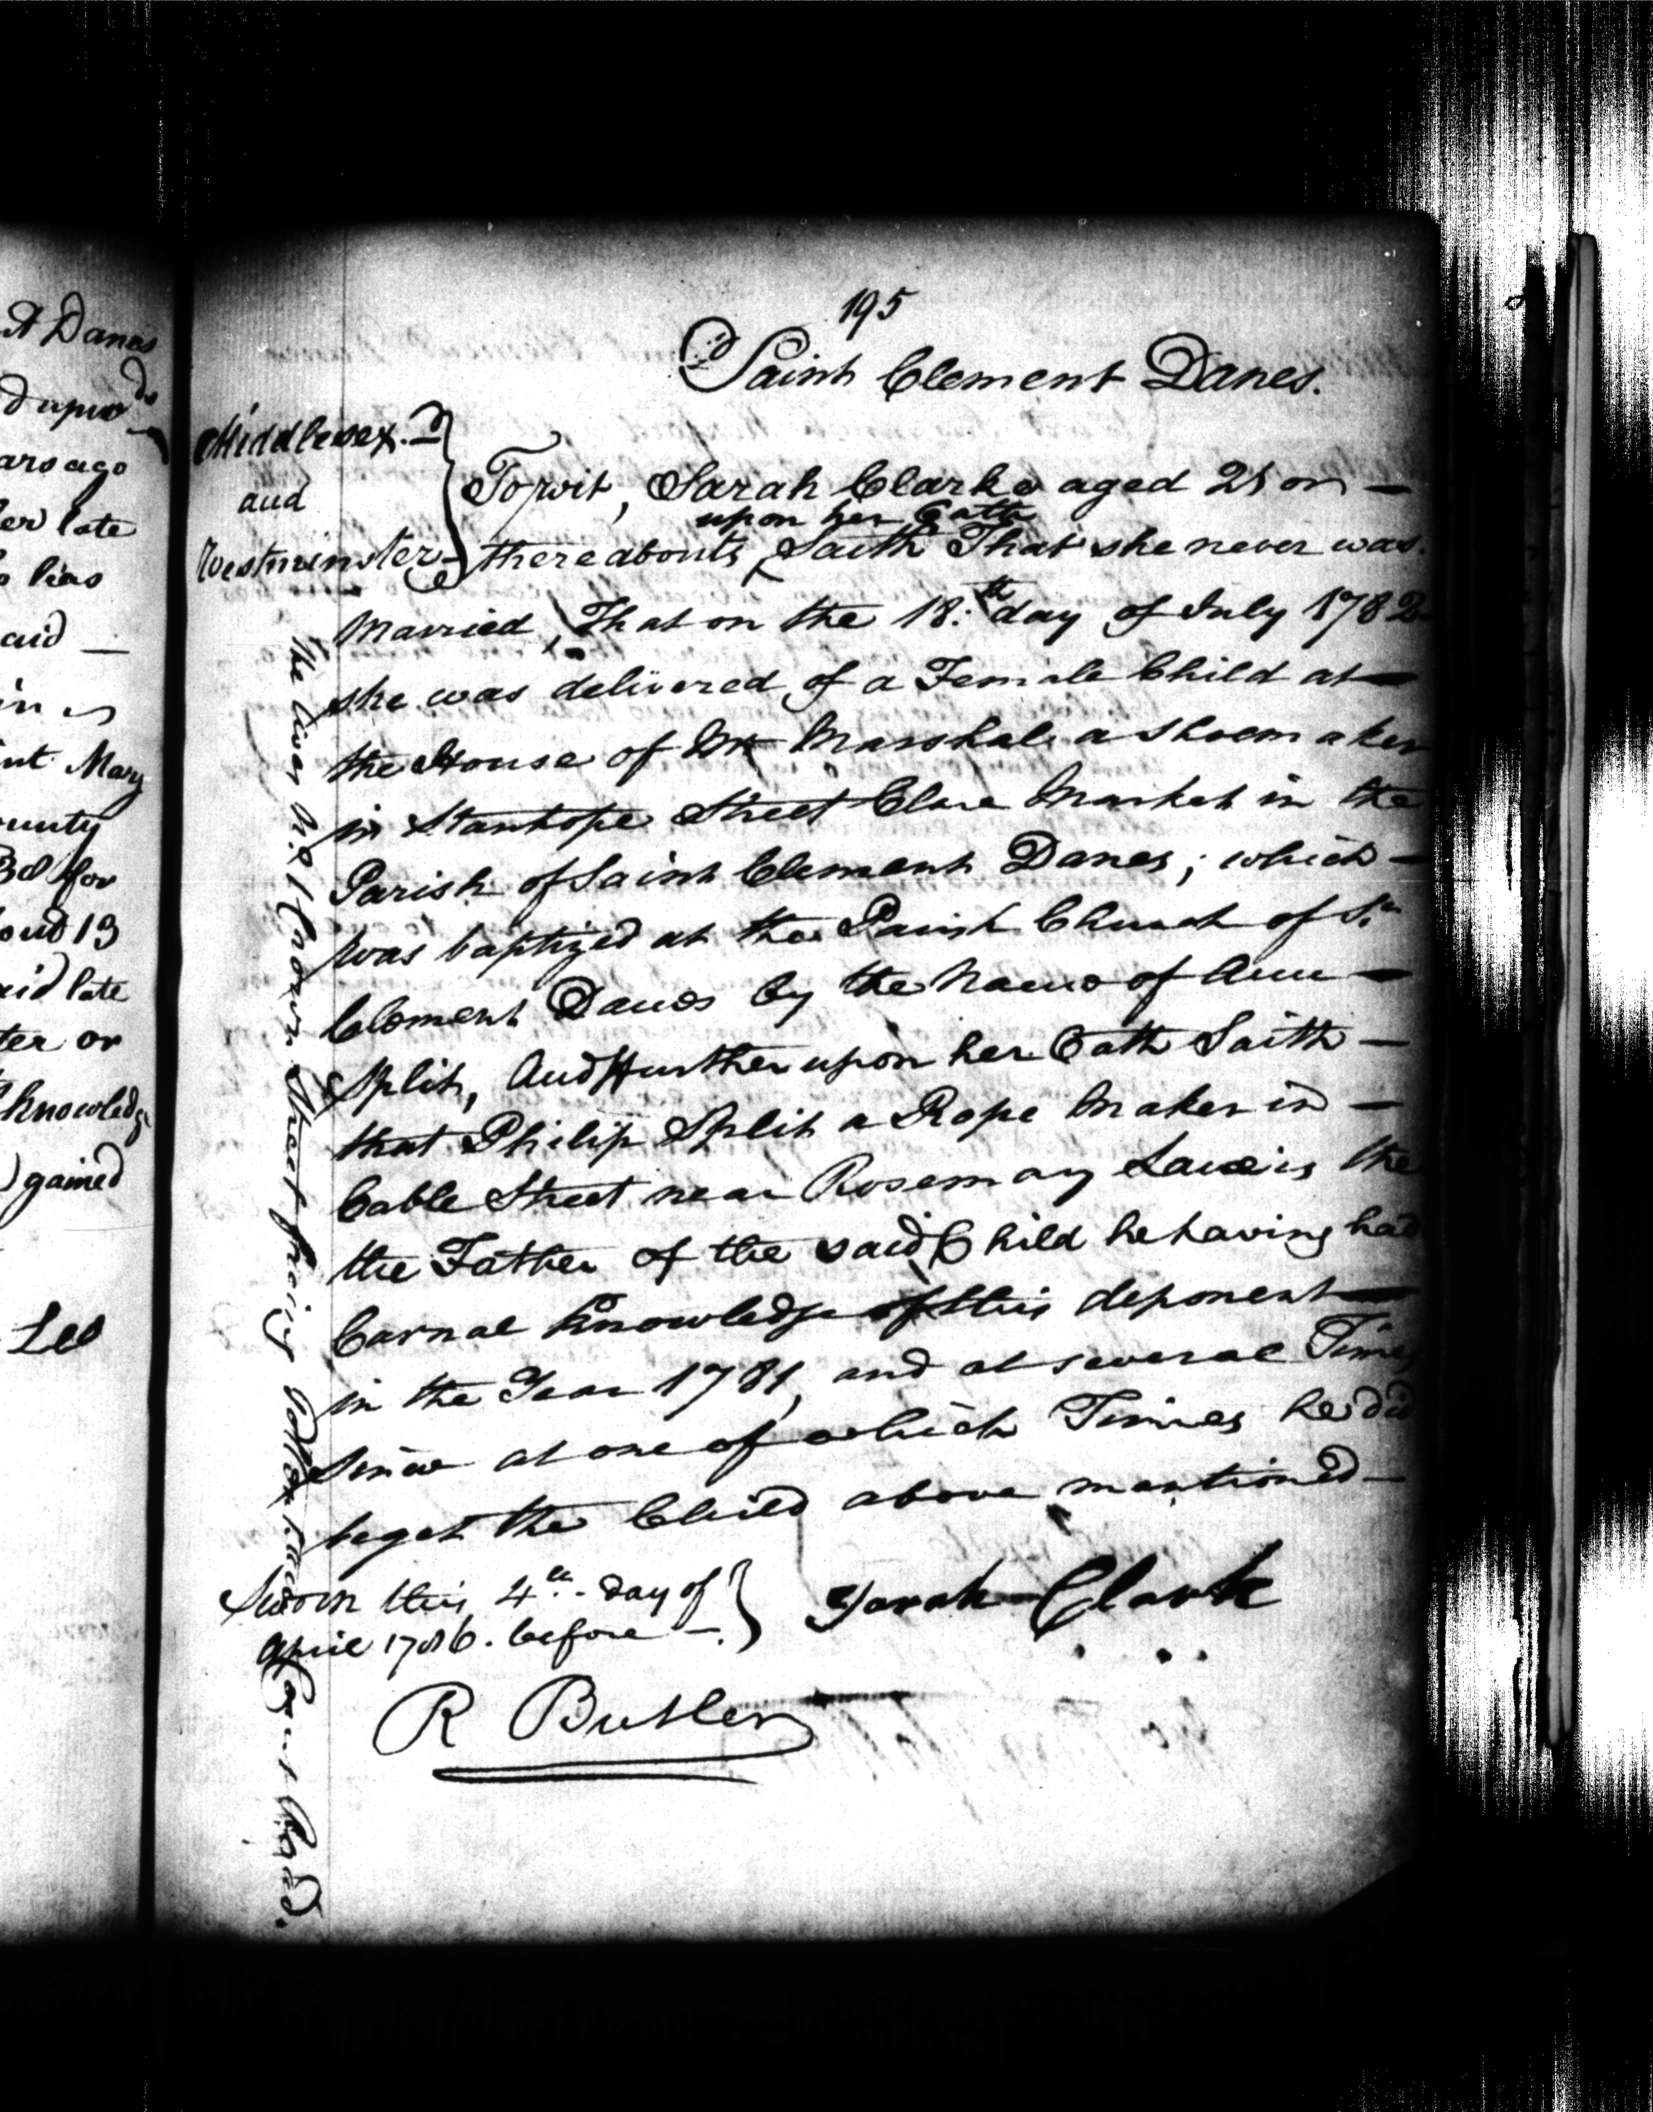 195
Saint Clement Danes.
Middlesex.
and
Westminster
To wit, Sarah Clarke aged 21 or
upon her Oath
thereabouts, Saith That she never was
Married, That on the 18.th day of July 1782
she was delivered of a Female Child at
the House of Mr Marshall a Shoemaker
in Stanhope Street Clare Market in the
Parish of Saint Clement Danes; which
was baptized at the Parish Church of St.
Clement Danes by the Name of Ann
Split, And further upon her Oath Saith
that Philip Split a Rope Maker in
Cable Street near Rosemary Lane is the
the Father of the said Child he having had
Carnal Knowledge of this deponent
in the Year 1781, and at several Times
Since at one of which Times he did
beget the Child above mentioned
Sworn this 4th. day of
April 1786. before
Sarah Clark
R Butler
She lives No. 1 Crown Street facing
Road.
nt Danes
ars ago
late
aid
in
nt Mary
ounty
for
13
aid late
ter or
knowledge
gained
Lee